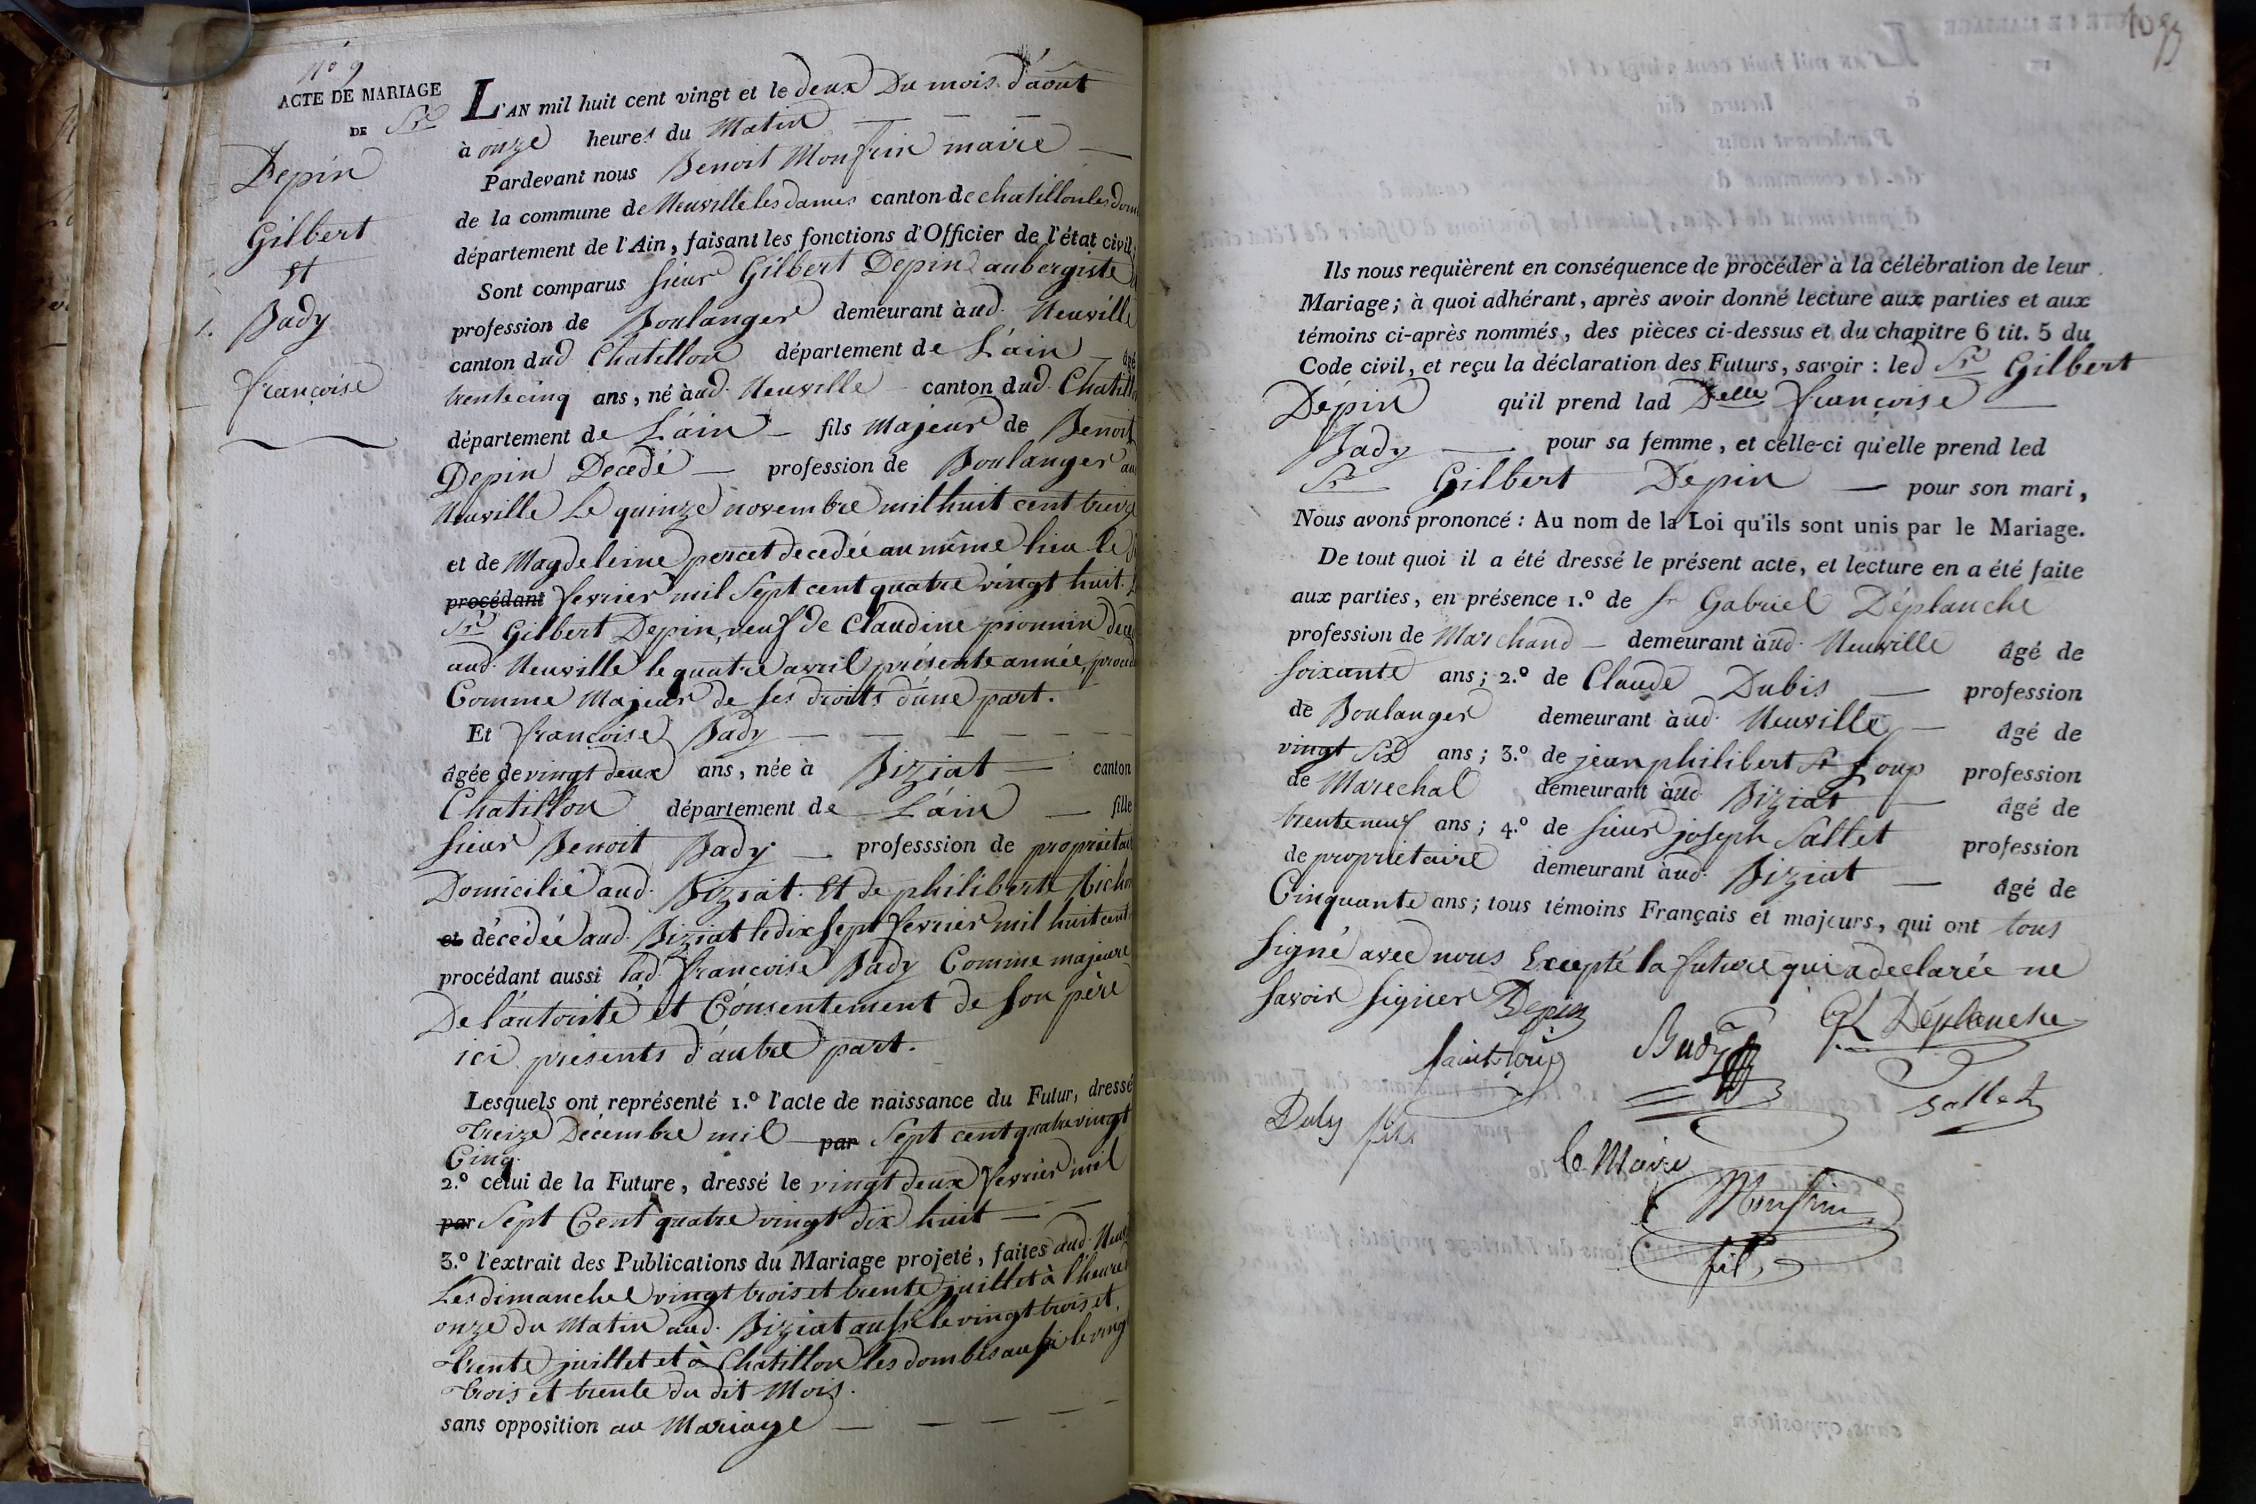 N° 9
ACTE DE MARIAGE
DE Sr
Depin
Gilbert
Et
Bady
françoise
L'AN mil huit cent vingt et le deux Du mois d'aout
à onze heures du Matin
Pardevant nous Benoit Monfrin maire
de la commune de Neuville les dames canton de chatillon les
département de l'Ain, faisant les fonctions d'Officier de l'état civil,
Sont comparus Sieur Gilbert Depin aubergiste
profession de Boulanger demeurant àud. Neuville
canton dud Chatillon département de L'ain âgé
trente cinq ans, né àud. Neuville canton dud. Chatill
département de L'ain fils Majeur de Benoit
Depin Decedé profession de Boulanger
Neuville Le quinze novembre mil huit cent treize
et de Magdeleine percet decedée au même lieu le
procédant fevrier mil Sept cent quatre vingt huit.
Sr Gilbert Depin, veuf de Claudine pionnin
aud. Neuville le quatre avril présente année,
Comme Majeur de ses droits d'une part.
Et françoise Bady
âgée de vingt deux ans, née à Biziat canton
Chatillon département de L'ain fille
Sieur Benoit Bady professsion de
Domicilié aud. Biziat. Et de philiberte
et décédée aud. Biziat le dix sept fevrier mil huit cent
procédant aussi lad. françoise Bady Comme majeure
De l'autorité et Consentement de son père
ici présents d'autre part.
Lesquels ont représenté 1.º l'acte de naissance du Futur, dressé
treize Decembre mil par Sept cent quatre vingt
Cinq.
2.º celui de la Future, dressé le vingt deux fevrier mil
par Sept Cent quatre vingt dix huit
3.º l'extrait des Publications du Mariage projeté, faites aud.
Les dimanche vingt trois et trente juillet à l'heure
onze du Matin aud. Biziat aussi le vingt trois et
trente juillet et à Chatillon les dombes aussi le
trois et trente du dit Mois.
sans opposition au Mariage
Ils nous requièrent en conséquence de procéder à la célébration de leur
Mariage; à quoi adhérant, après avoir donné lecture aux parties et aux
témoins ci-après nommés, des pièces ci-dessus et du chapitre 6 tit. 5 du
Code civil, et reçu la déclaration des Futurs, savoir : led Sr Gilbert
Dépin qu'il prend lad Delle françoise
Bady pour sa femme, et celle-ci qu'elle prend led
Sr Gilbert Depin pour son mari,
Nous avons prononcé : Au nom de la Loi qu'ils sont unis par le Mariage.
De tout quoi il a été dressé le présent acte, et lecture en a été faite
aux parties, en présence 1.º de Sr Gabriel Déplanche
profession de Marchand demeurant àud. Neuville âgé de
soixante ans; 2.º de Claude Dubis profession
de Boulanger demeurant àud. Neuville âgé de
vingt six ans; 3.º de jean philibert St Loup profession
de Marechal demeurant àud Biziat âgé de
trente neuf ans; 4.º de sieur joseph Sallet profession
de propriétaire demeurant àud. Biziat âgé de
Cinquante ans; tous témoins Français et majeurs, qui ont tous
Signé avec nous Excepté la future qui a declarée ne
savoir signer Depin
Saint loup Bady GL Déplanche
Sallet
fils
le Maire
Monfrin
fils